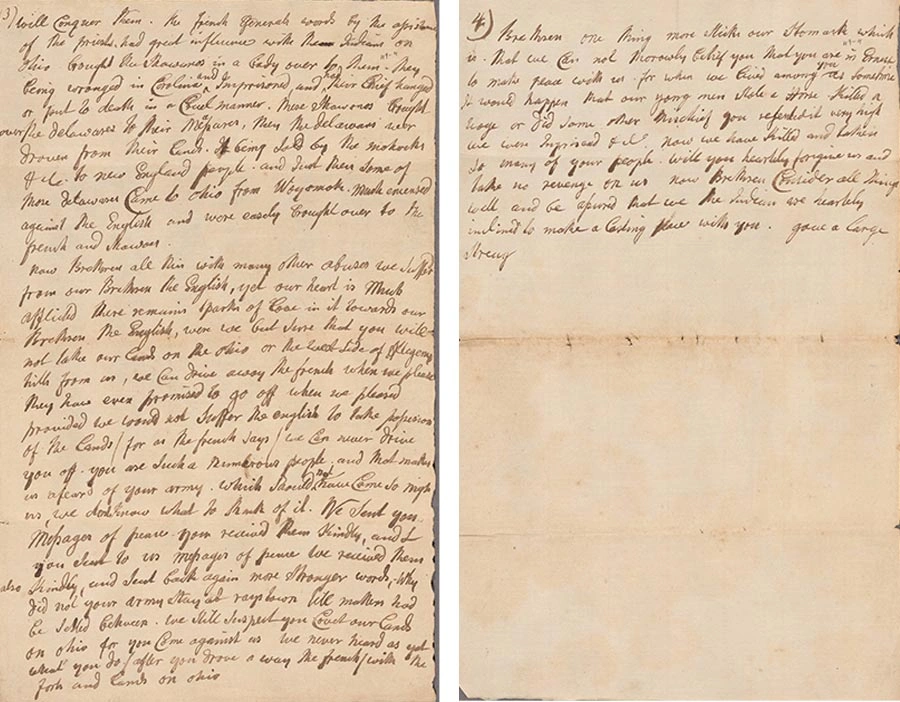 3) will Conquer them. the french Generals words by the assistance
of the priests. had great influence with the Indians on
Ohio brought the Shawanes in a body over to them. they
being wronged in Carolina and Imprisoned and had their Chief hanged
or put to death in a Cruel manner. these Shawones brought
over the delawares to their Measures, then the delawars were
droven from their Lands. It being sold by the mohocks
&c. to new England people. and Just then some of
these delawares Came to Ohio from Wayomok. Much encensed
against the English and were easely brought over to the
french and Shawons.
now Brethren all this with many other abuses we suffed
from our Brethren the English, yet our heart is Much
afflicted there remains sparks of Love in it towards our
Brethren the English, were we but sure that you will
not take our Lands on the ohio or the west side of Allegeny
hills from us, we Can drive away the french when we please
they have even promised to go off when we pleased
provided we would not suffer the english to take possession
of the Lands / for as the french says / we Can never drive
you off. you are such a numerous people. and that makes
us afeard of your army. which should not have Come so nigh
us, we dont know what to think of it. We sent you
Messages of peace you received them kindly, and
you sent to us messages of peace we received them
also kindly, and sent back again more Stronger words, Why
did not your army stay at raystown till matters had
be setled between. we still suspect you Covet our Lands
on ohio for you Come against us we never heard as yet
what you do / after you drove a way the french / with the
forts and Lands on ohio
4) Brethren one thing more sticks our Stomark which
is. that we Can not thorowly belief you that you are in Ernest
to make peace with us. for when we lived among you as somtimes
it would happen that our yong men stole a Horse killed a
hoge or did some other Mischief you resented it very high
we were Imprisod &c now we have killed and taken
so many of your people. will you heartely forgive us and
take no revenge on us now Brethren Consider all things
well and be assured that we the Indians are heartely
inclined to make a Lasting peace with you. gave a large
streng